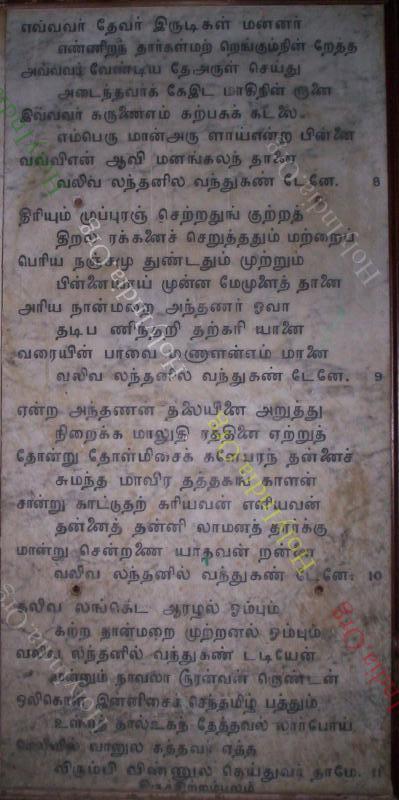 எவ்வவர் தேவர் இருடிகள் மன்னர்
எண்ணிறந் தார்கள்மற் றெங்கும்நின் றேத்த
அவ்வவர் வேண்டிய தேஅருள் செய்து
அடைந்தவர்க் கேஇட மாகிநின் றானை
இவ்வவர் கருணைஎம் கற்பகக் கடலை
எம்பெரு மான்அரு ளாய்என்ற பின்னை
வவ்விஎன் ஆவி மனங்கலந் தானை
வலிவ லந்தனில் வந்துகண் டேனே. 8
திரியும் முப்புரஞ் செற்றதுங் குற்றத்
திறல ரக்கனைச் செறுத்ததும் மற்றைப்
பெரிய நஞ்சமு துண்டதும் முற்றும்
பின்னையாய் முன்ன மேமுளைத் தானை
அரிய நான்மறை அந்தணர் ஓவா
தடிப ணிந்தறி தற்கரி யானை
வரையின் பாவை மணாளன்எம் மானை
வலிவ லந்தனில் வந்துகண் டேனே. 9
ஏன்ற அந்தணன் தலையினை அறுத்து
நிறைக்க மாலுதி ரத்தினை ஏற்றுத்
தோன்று தோள்மிசைக் களேபரந் தன்னைச்
சுமந்த மாவிர தத்தகங் காளன்
சான்று காட்டுதற் கரியவன் எளியவன்
தன்னைத் தன்னி லாமனத் தார்க்கு
மான்று சென்றணை யாதவன் றன்னை
வலிவ லந்தனில் வந்துகண் டேனே. 10
கலிவ லங்கெட ஆரழல் ஓம்பும்
கற்ற நான்மறை முற்றனல் ஓம்பும்
வலிவ லந்தனில் வந்துகண் டடியேன்
மன்னும் நாவலா ரூரன்வன் றொண்டன்
ஒலிகொள் இன்னிசைச் செந்தமிழ் பத்தும்
உள்ளத் தால்உகந் தேத்தவல் லார்போய்
வானுல கத்தவர் ஏத்த
விரும்பி விண்ணுல கெய்துவர் தாமே. 11
திருச்சிற்றம்பலம்
Holy India.Org
Holy India.Org
Holy India.Org
Holy India.Org
Holy India.Org
India.Org